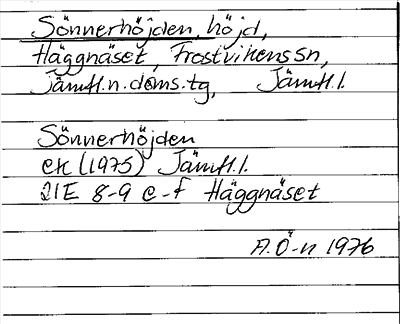 Sönnerhöjden, höjd,
Häggnäset, Frostvikens sn,
Jämtl.n.doms.tg, Jämtl.l.
Sönnerhöjden
ek (1975) Jämtl.l.
21E 8-9 e-f Häggnäset
A.Ö-n 1976